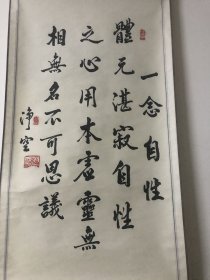 一念自性
體元湛寂自性
之心用本虛靈無
相無名不可思議
淨空